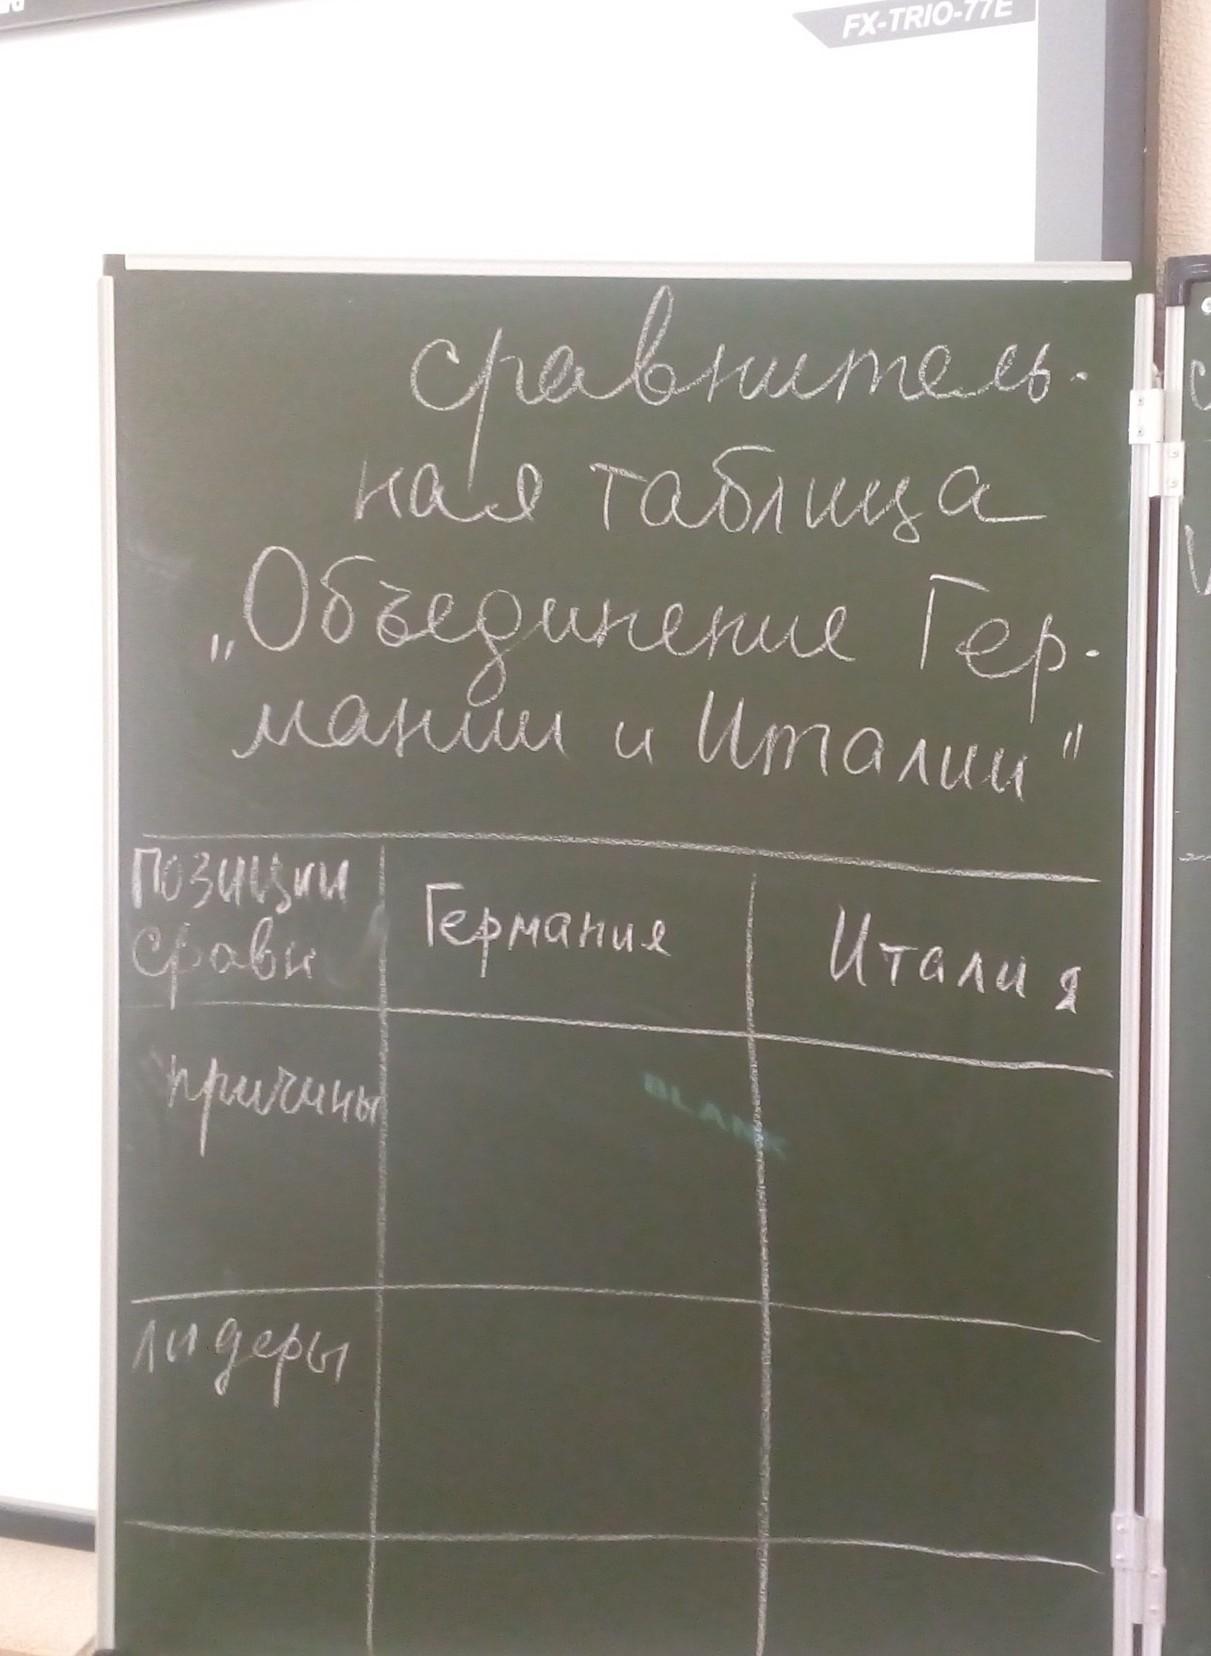 FX-TRIO-77E
сравнитель-
ная таблица
„Объединение Гер-
мании и Италии"
Позиции
сравн
Германия
Италия
причины
BLANK
лидеры